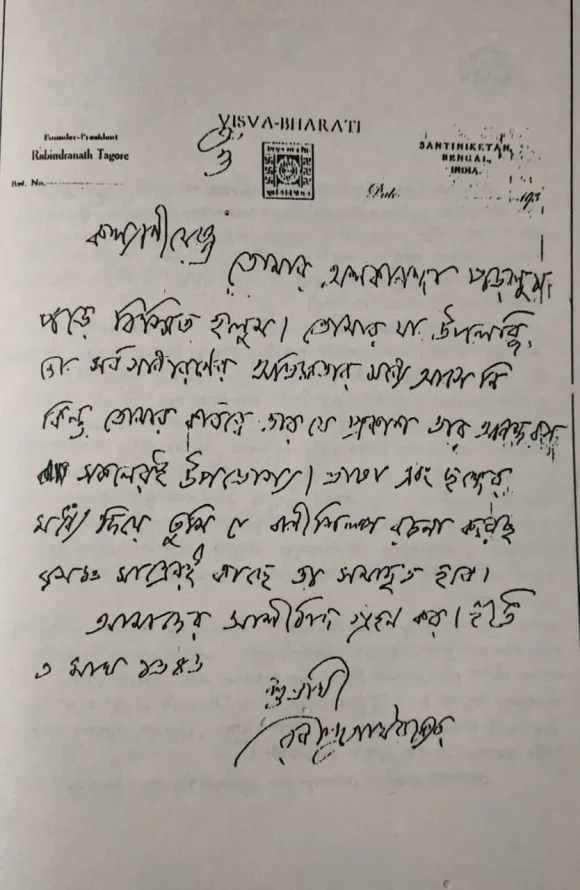 VISVA-BHARATI
Founder-President
Rabindranath Tagore
Ref. No.
ওঁ
SANTINIKETAN,
BENGAL,
INDIA.
Date 193
কল্যাণীয়েষু
তোমার অলকানন্দা পড়লুম।
পড়ে বিস্মিত হলুম। তোমার যা উপলব্ধি
তা সর্বসাধারণের অভিজ্ঞতার মধ্যে আসে নি
কিন্তু তোমার কাব্যে তার যে প্রকাশ তার আনন্দরস
সকলেরই উপভোগ্য। ভাষা এবং ছন্দের
মধ্যে দিয়ে তুমি যে বাণীশিল্প রচনা করেছ
রসজ্ঞ মাত্রেরই কাছে তা সমাদৃত হবে।
আমাদের আশীর্বাদ গ্রহণ কর। ইতি
৩ মাঘ ১৩৪৩
শুভার্থী
রবীন্দ্রনাথ ঠাকুর